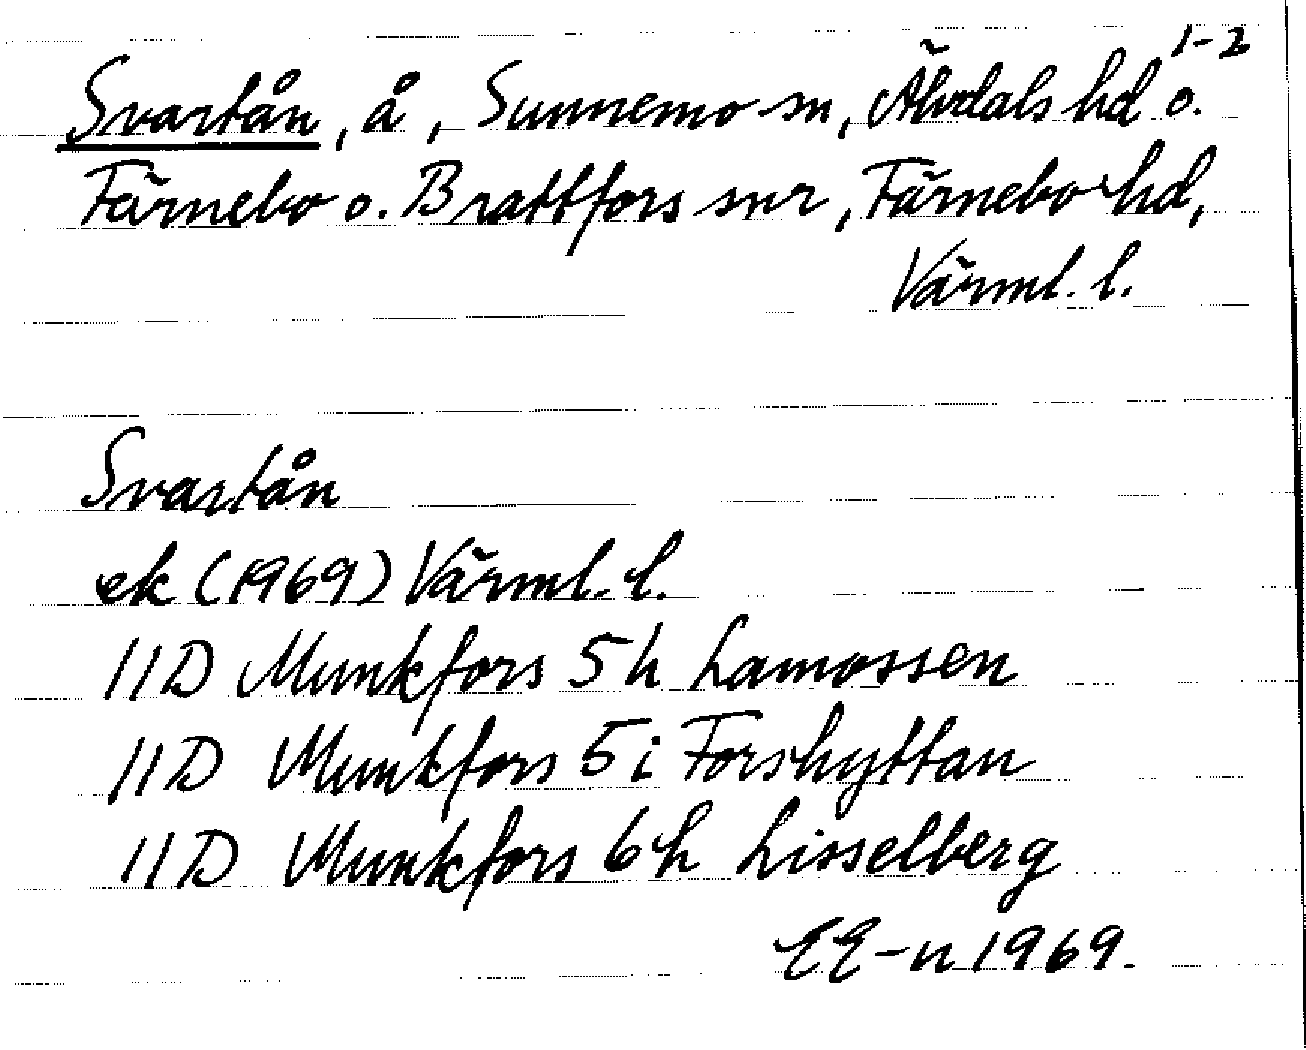 1-2
Svartån, å, Sunnemo sn, Älvdals hd o.
Färnebo o. Brattfors snr, Färnebo hd,
Värml. l.
Svartån
ek (1969) Värml. l.
11D Munkfors 5 h Lamossen
11D Munkfors 5 i Forshyttan
11D Munkfors 6 h Lisselberg
EE-n 1969.